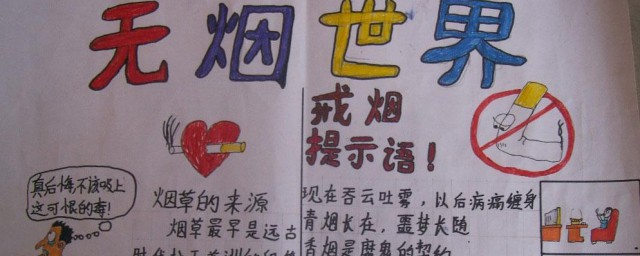 无烟世界
戒烟
提示语！
真后悔不该吸上
这可恨的毒！
烟草的来源
烟草最早是远古
现在吞云吐雾，以后病痛缠身
青烟长在，噩梦长随
香烟是魔鬼的契约